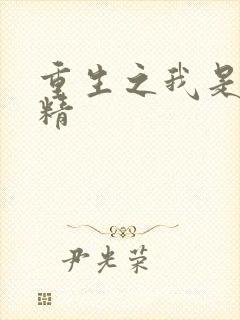 重生之我是
精
尹光荣